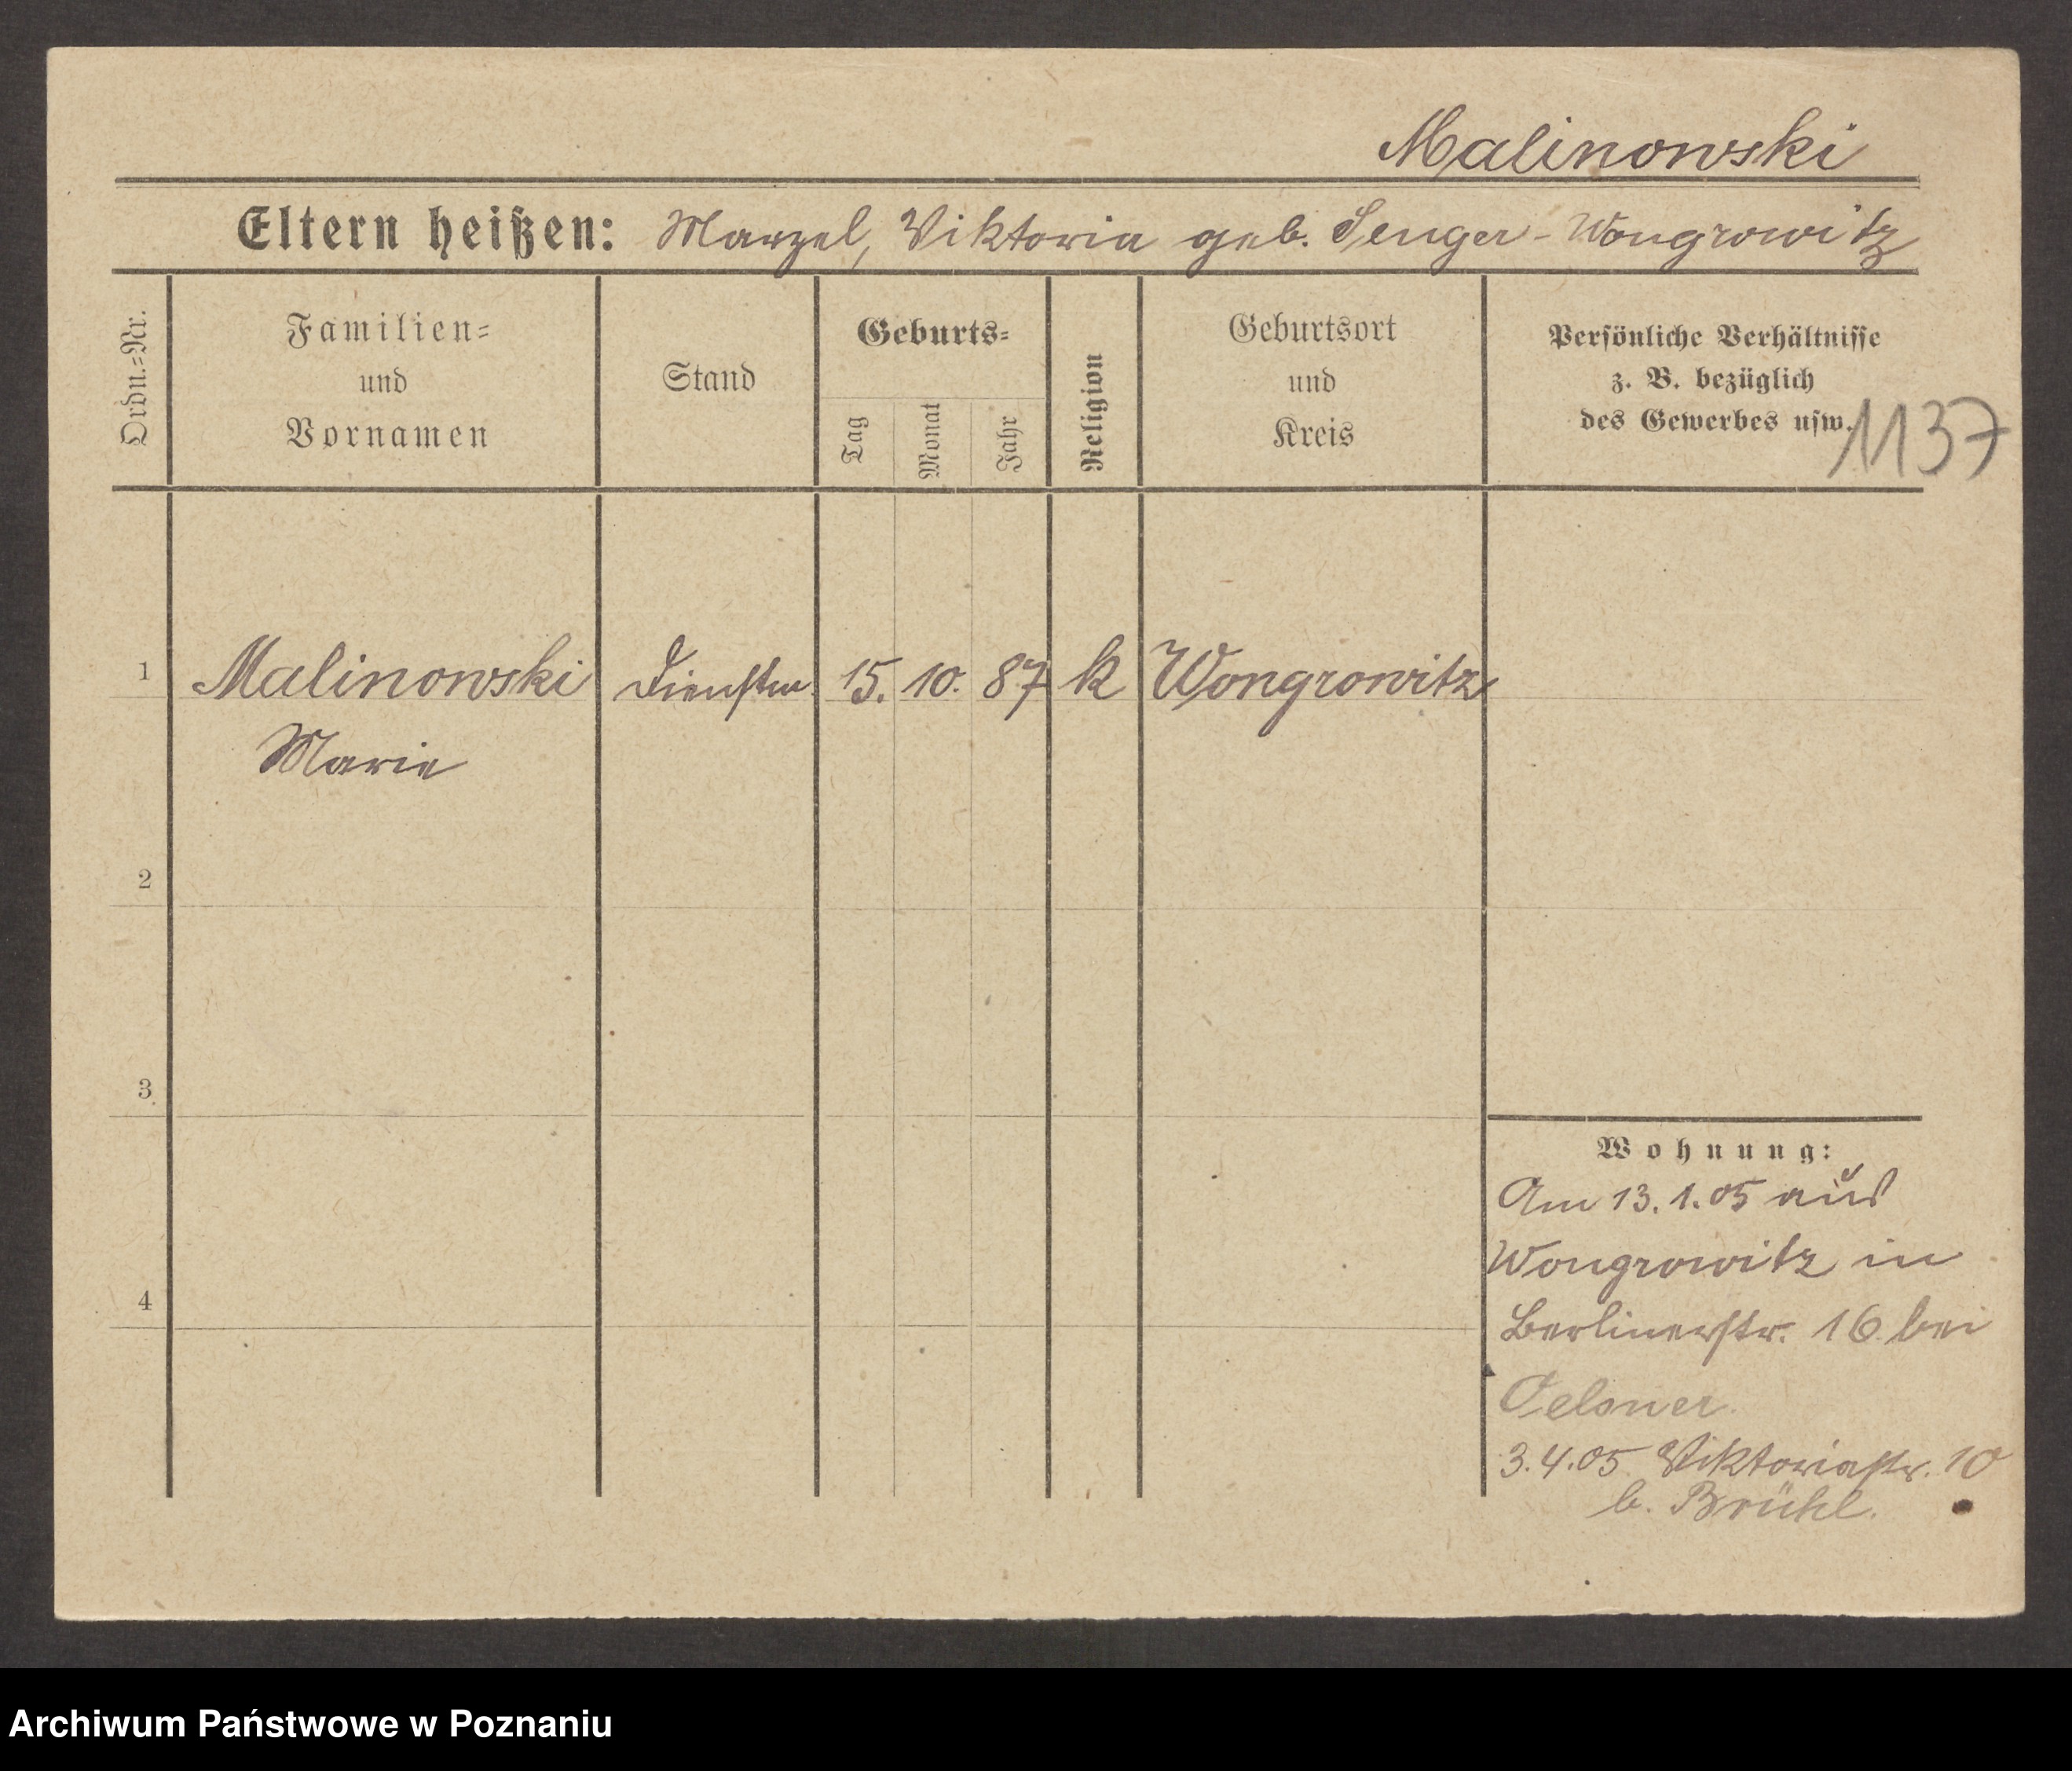 Malinowski
Eltern heißen: Marzel, Viktoria geb. Senger - Wongrowitz
Ordn.=Nr.
Familien=
und
Vornamen
Stand
Geburts=
Tag
Monat
Jahr
Religion
Geburtsort
und
Kreis
Persönliche Verhältnisse
z. B. bezüglich
des Gewerbes usw.
1137
1 Malinowski Dienstm. 15. 10. 87 k Wongrowitz
Marie
2
3
4
Wohnung:
Am 13.1.05 aus
Wongrowitz in
Berlinerstr. 16 bei
Oelsner.
3.4.05 Viktoriastr. 10
b. Brühl.
Archiwum Państwowe w Poznaniu